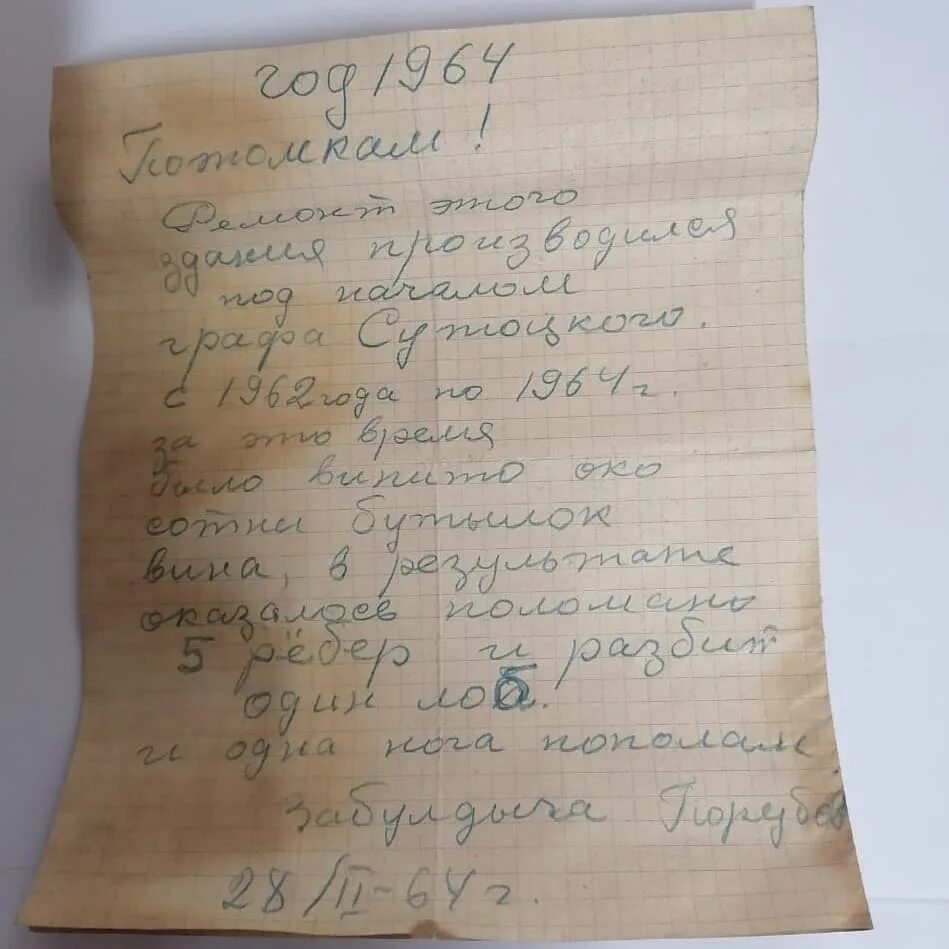 год 1964
Потомкам!
Ремонт этого
здания производился
под началом
графа Сутоцкого.
с 1962 года по 1964 г.
за это время
было випито око
сотни бутылок
вина, в результате
оказалось поломано
5 рёбер и разбит
один лоб.
и одна нога пополам
забулдыга Порубов
28/II-64 г.